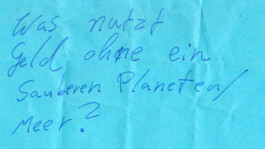 Was nutzt
Geld ohne ein
Sauberen Planeten/
Meer?